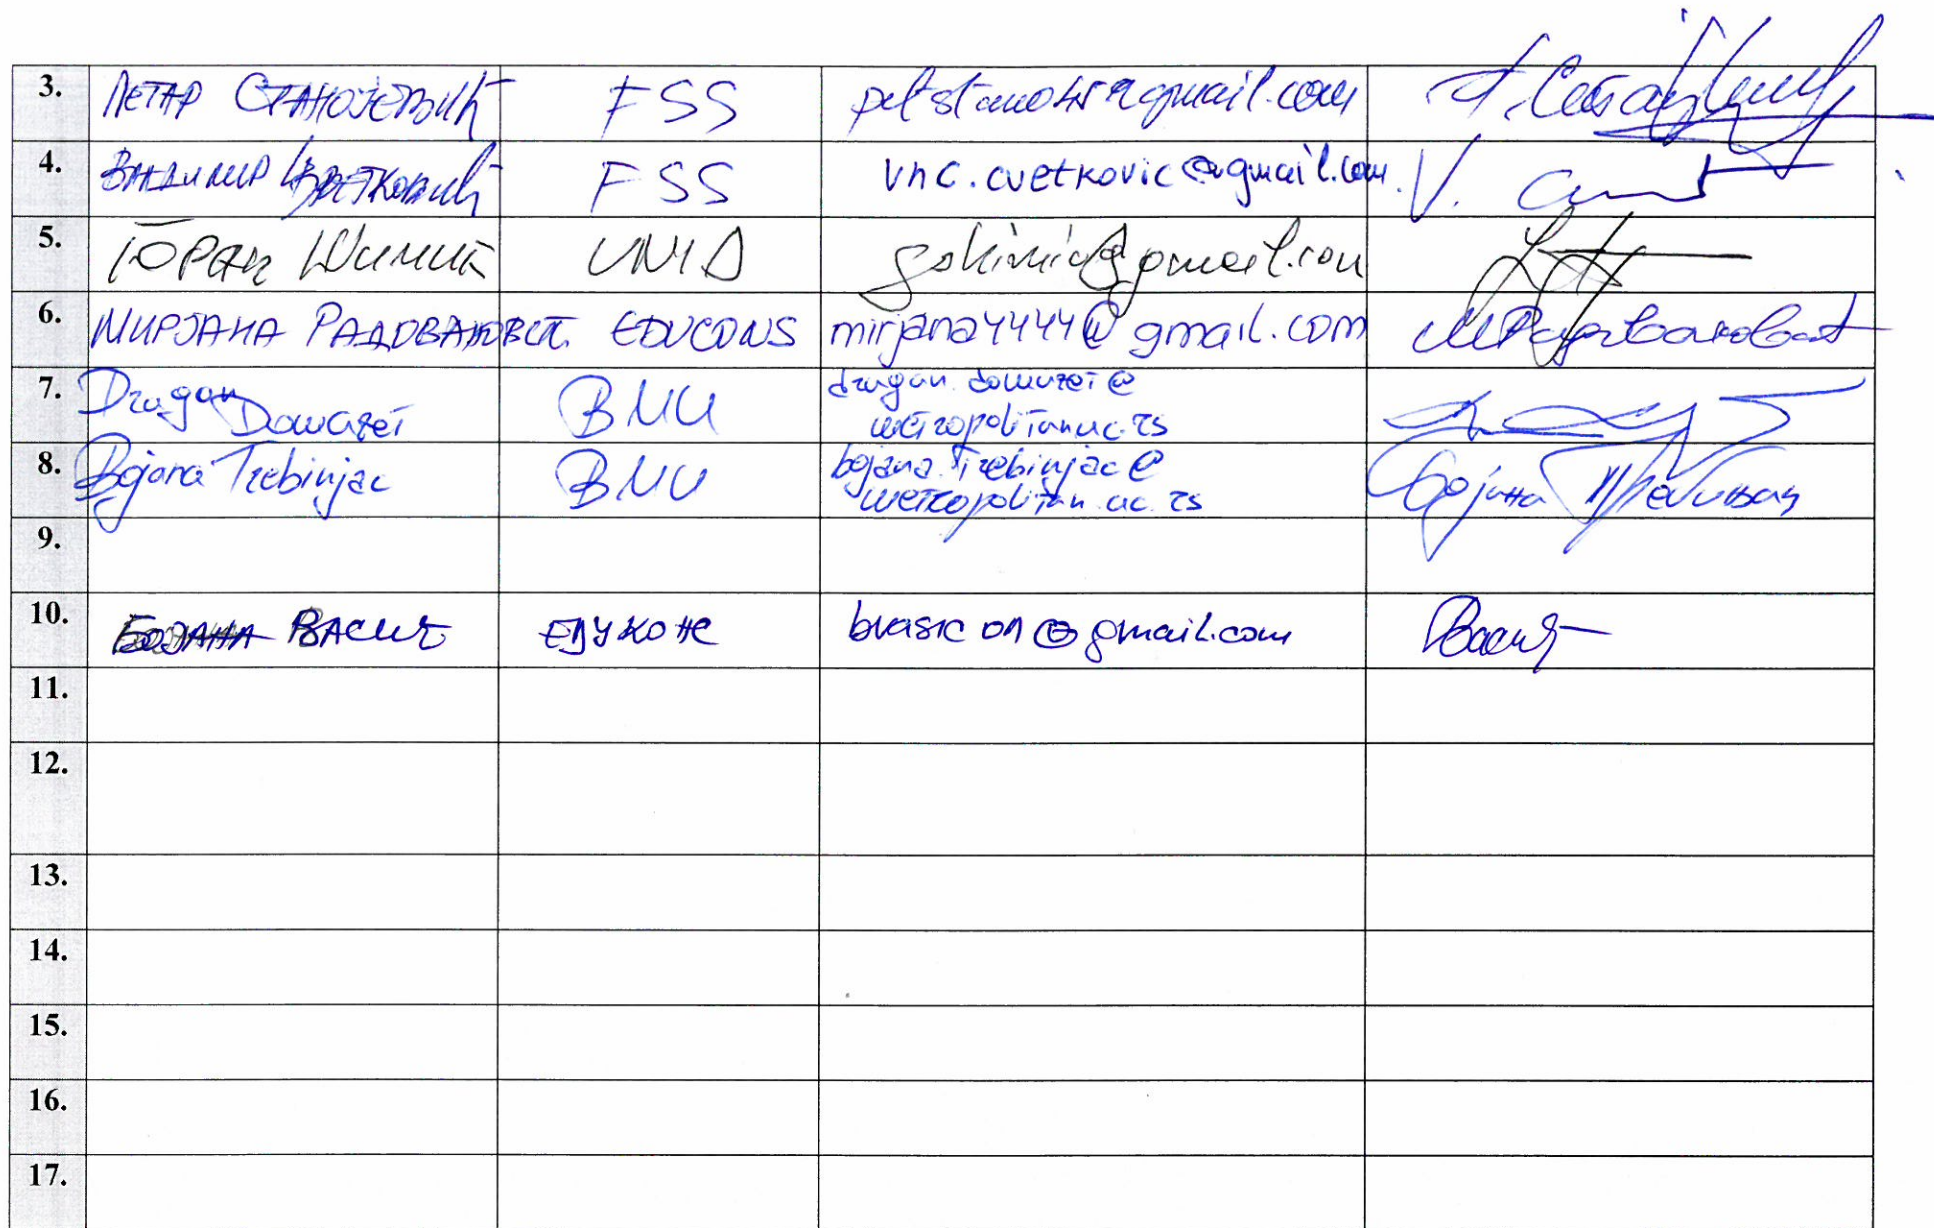 3. ПЕТАР СТАНОЈЕВИЋ FSS
4. ВЛАДИМИР ЦВЕТКОВИЋ FSS vnc.cvetkovic@gmail.com V.
5. ГОРАН ШИМИЋ UNID gshimic@gmail.com
6. МИРЈАНА РАДОВАНОВИЋ EDUCONS mirjana4444@gmail.com МРадовановић
7. Dragan Domazet BMU dragan.domazet@
metropolitan.ac.rs
8. Bojana Trebinjac BMU bojana.trebinjac@
metropolitan.ac.rs Бојана Требињац
9.
10. БОЈАНА ВАСИЋ ЕДУКОНС bvasic01@gmail.com БВасић
11.
12.
13.
14.
15.
16.
17.